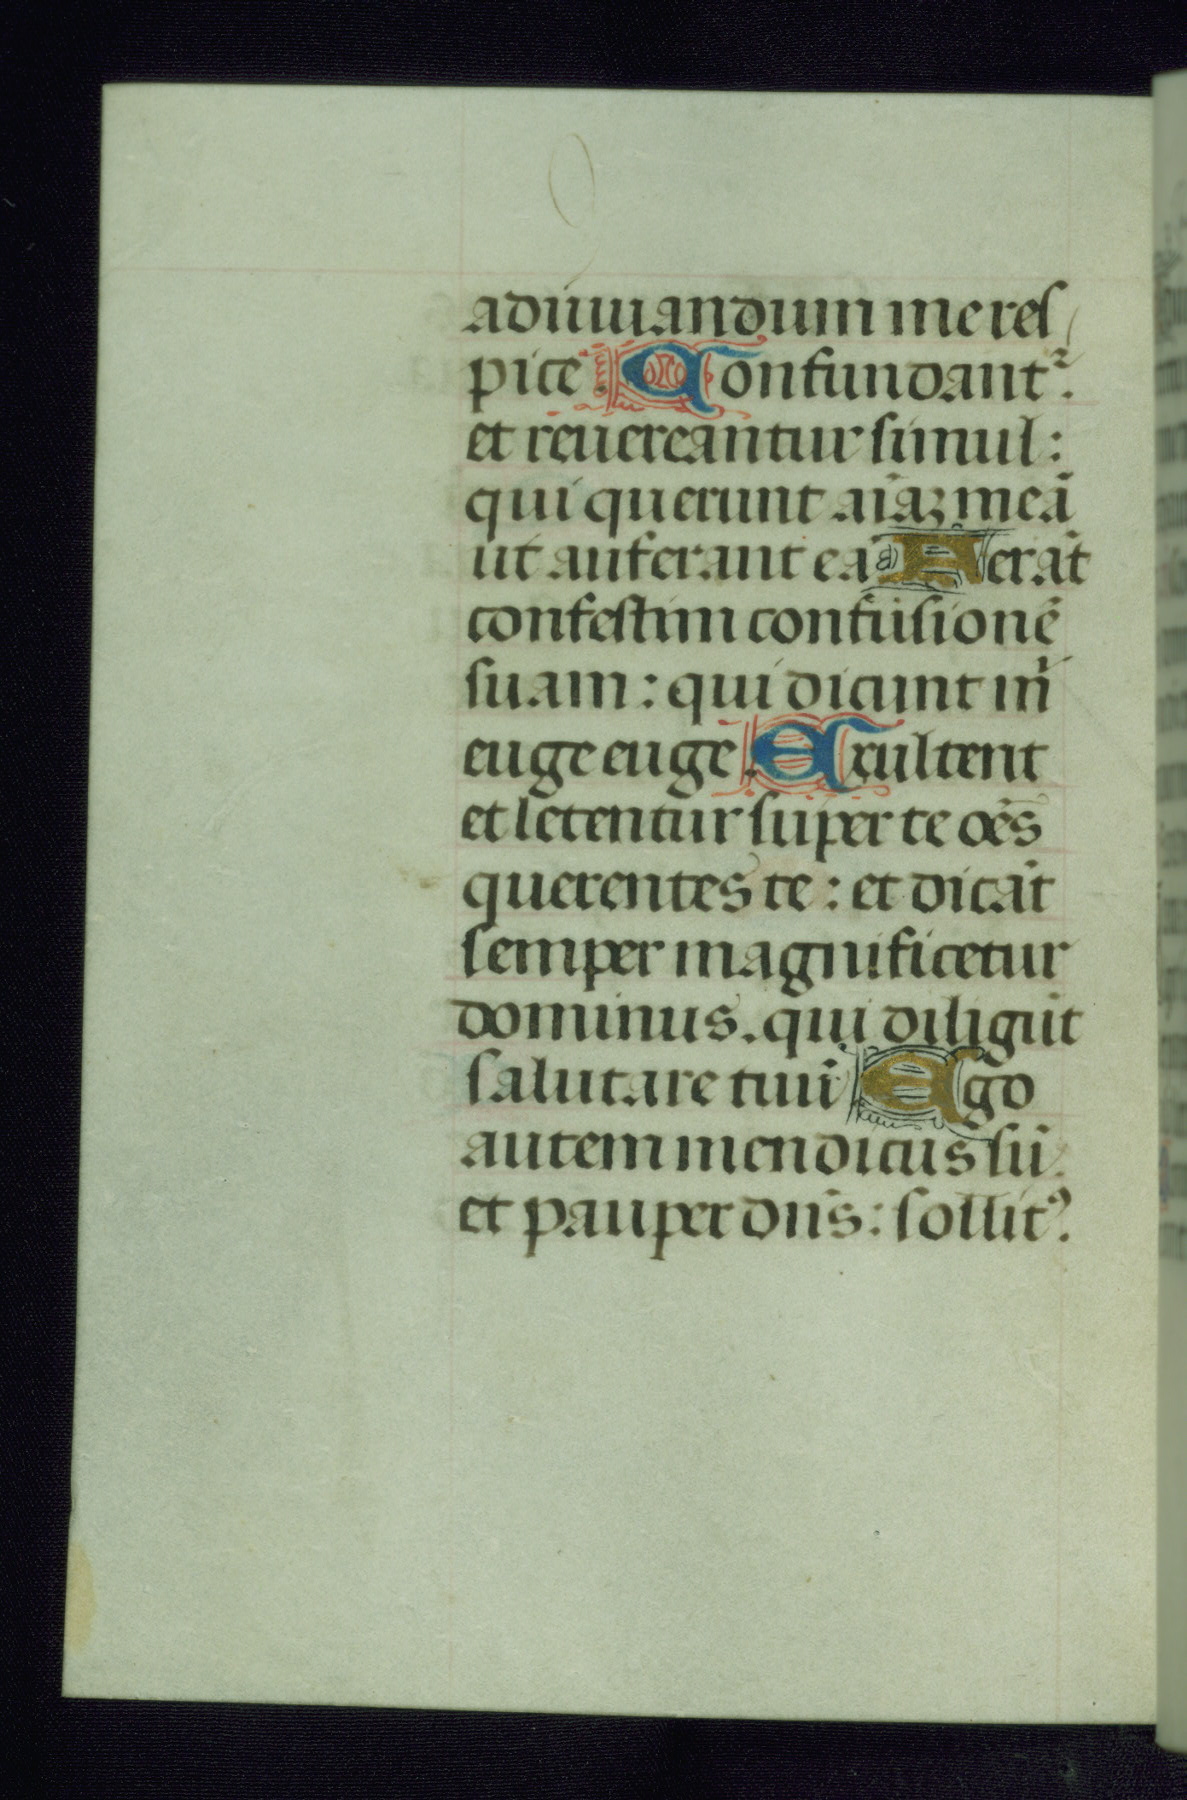 adiuuandum me res
pice. Confundantᷣ.
et reuereantur simul:
qui querunt aı̄aꝫ meā
ut auferant eā Ferāt
confestim confusionē
suam: qui dicunt m̄
euge euge. Exultent
et letentur super te oēs
querentes te: et dicāt
semper magnificetur
dominus. qui diligūt
salutare tuū Ego
autem mendicus sū.
et pauper dn̄s: sollitꝰ.